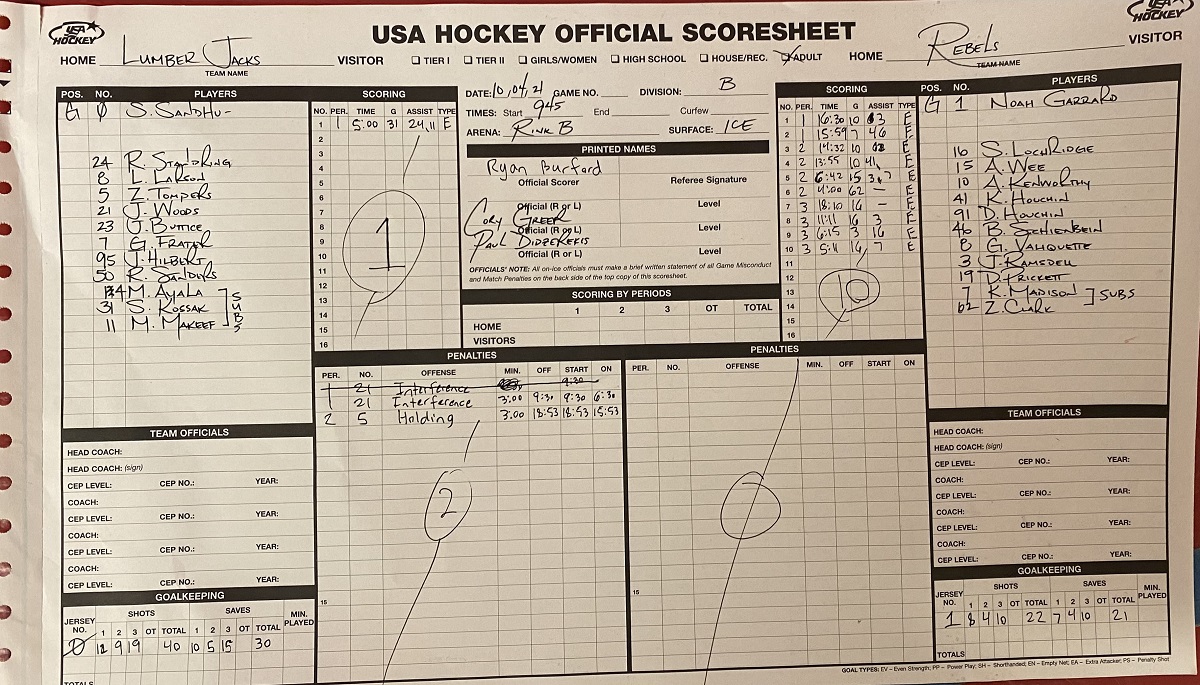 USA HOCKEY
USA HOCKEY OFFICIAL SCORESHEET
USA HOCKEY
HOME LUMBER JACKS VISITOR
TEAM NAME
☐ TIER I ☐ TIER II ☐ GIRLS/WOMEN ☐ HIGH SCHOOL ☐ HOUSE/REC. ☑ ADULT
HOME REBELS VISITOR
TEAM NAME
POS. NO. PLAYERS
G 0 S. SANDHU
24 R. STANDRING
8 L. LARSON
5 Z. TOMPERS
21 J. WOODS
23 J. BUTTICE
7 G. FRATER
95 J. HILBERT
50 R. SANDERS
M. AYALA
31 S. KOSSAK
11 M. MAKEEF
SUBS
SCORING
NO. PER. TIME G ASSIST TYPE
1 1 5:00 31 24,11 E
2
3
4
5
6
7
8
9
10
11
12
13
14
15
16
1
DATE: 10/04/21 GAME NO. DIVISION: B
TIMES: Start 945 End Curfew
ARENA: RINK B SURFACE: ICE
PRINTED NAMES
Ryan Burford
Official Scorer Referee Signature
Official (R or L) Level
CORY GREER
Official (R or L) Level
PAUL DIDZEREKIS
Official (R or L) Level
OFFICIALS' NOTE: All on-ice officials must make a brief written statement of all Game Misconduct
and Match Penalties on the back side of the top copy of this scoresheet.
SCORING BY PERIODS
1 2 3 OT TOTAL
HOME
VISITORS
SCORING
NO. PER. TIME G ASSIST TYPE
1 1 16:30 10 3 E
2 1 15:59 7 46 E
3 2 14:32 10 E
4 2 13:55 10 41 E
5 2 6:42 15 3,7 E
6 2 4:00 62 — E
7 3 18:10 16 — E
8 3 11:11 16 3 E
9 3 6:15 3 16 E
10 3 5:11 16 7 E
11
12
13
14
15
16
10
POS. NO. PLAYERS
G 1 NOAH GARRARD
16 S. LOCHRIDGE
15 A. WEE
10 A. KENWORTHY
41 K. HOUCHIN
91 D. HOUCHIN
46 B. SCHIENBEIN
8 G. VALIQUETTE
3 J. RAMSDELL
19 D. PRICKETT
7 K. MADISON
62 Z. CLARK
SUBS
PENALTIES
PER. NO. OFFENSE MIN. OFF START ON
1 21 Interference 9:30
1 21 Interference 3:00 9:30 9:30 6:30
2 5 Holding 3:00 18:53 18:53 15:53
2
15
PENALTIES
PER. NO. OFFENSE MIN. OFF START ON
15
TEAM OFFICIALS
HEAD COACH:
HEAD COACH: (sign)
CEP LEVEL: CEP NO.: YEAR:
COACH:
CEP LEVEL: CEP NO.: YEAR:
COACH:
CEP LEVEL: CEP NO.: YEAR:
COACH:
CEP LEVEL: CEP NO.: YEAR:
GOALKEEPING
JERSEY NO. SHOTS SAVES MIN. PLAYED
1 2 3 OT TOTAL 1 2 3 OT TOTAL
0 12 9 19 40 10 5 15 30
TOTALS
TEAM OFFICIALS
HEAD COACH:
HEAD COACH: (sign)
CEP LEVEL: CEP NO.: YEAR:
COACH:
CEP LEVEL: CEP NO.: YEAR:
COACH:
CEP LEVEL: CEP NO.: YEAR:
COACH:
CEP LEVEL: CEP NO.: YEAR:
GOALKEEPING
JERSEY NO. SHOTS SAVES MIN. PLAYED
1 2 3 OT TOTAL 1 2 3 OT TOTAL
1 8 4 10 22 7 4 10 21
TOTALS
GOAL TYPES: EV – Even Strength; PP – Power Play; SH – Shorthanded; EN – Empty Net; EA – Extra Attacker; PS – Penalty Shot